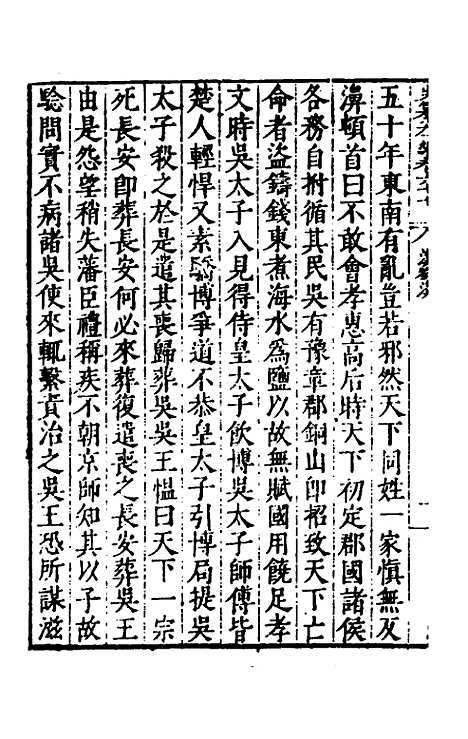 五十年東南有亂豈若邪然天下同姓一家慎無反
濞頓首曰不敢會孝惠高后時天下初定郡國諸侯
各務自拊循其民吳有豫章郡銅山卽招致天下亡
命者盜鑄錢東煮海水爲鹽以故無賦國用饒足孝
文時吳太子入見得侍皇太子飲博吳太子師傅皆
楚人輕悍又素驕博爭道不恭皇太子引博局提吳
太子殺之於是遣其喪歸葬吳吳王慍曰天下一宗
死長安卽葬長安何必來葬復遣喪之長安葬吳王
由是怨望稍失藩臣禮稱疾不朝京師知其以子故
驗問實不病諸吳使來輒繫責治之吳王恐所謀滋